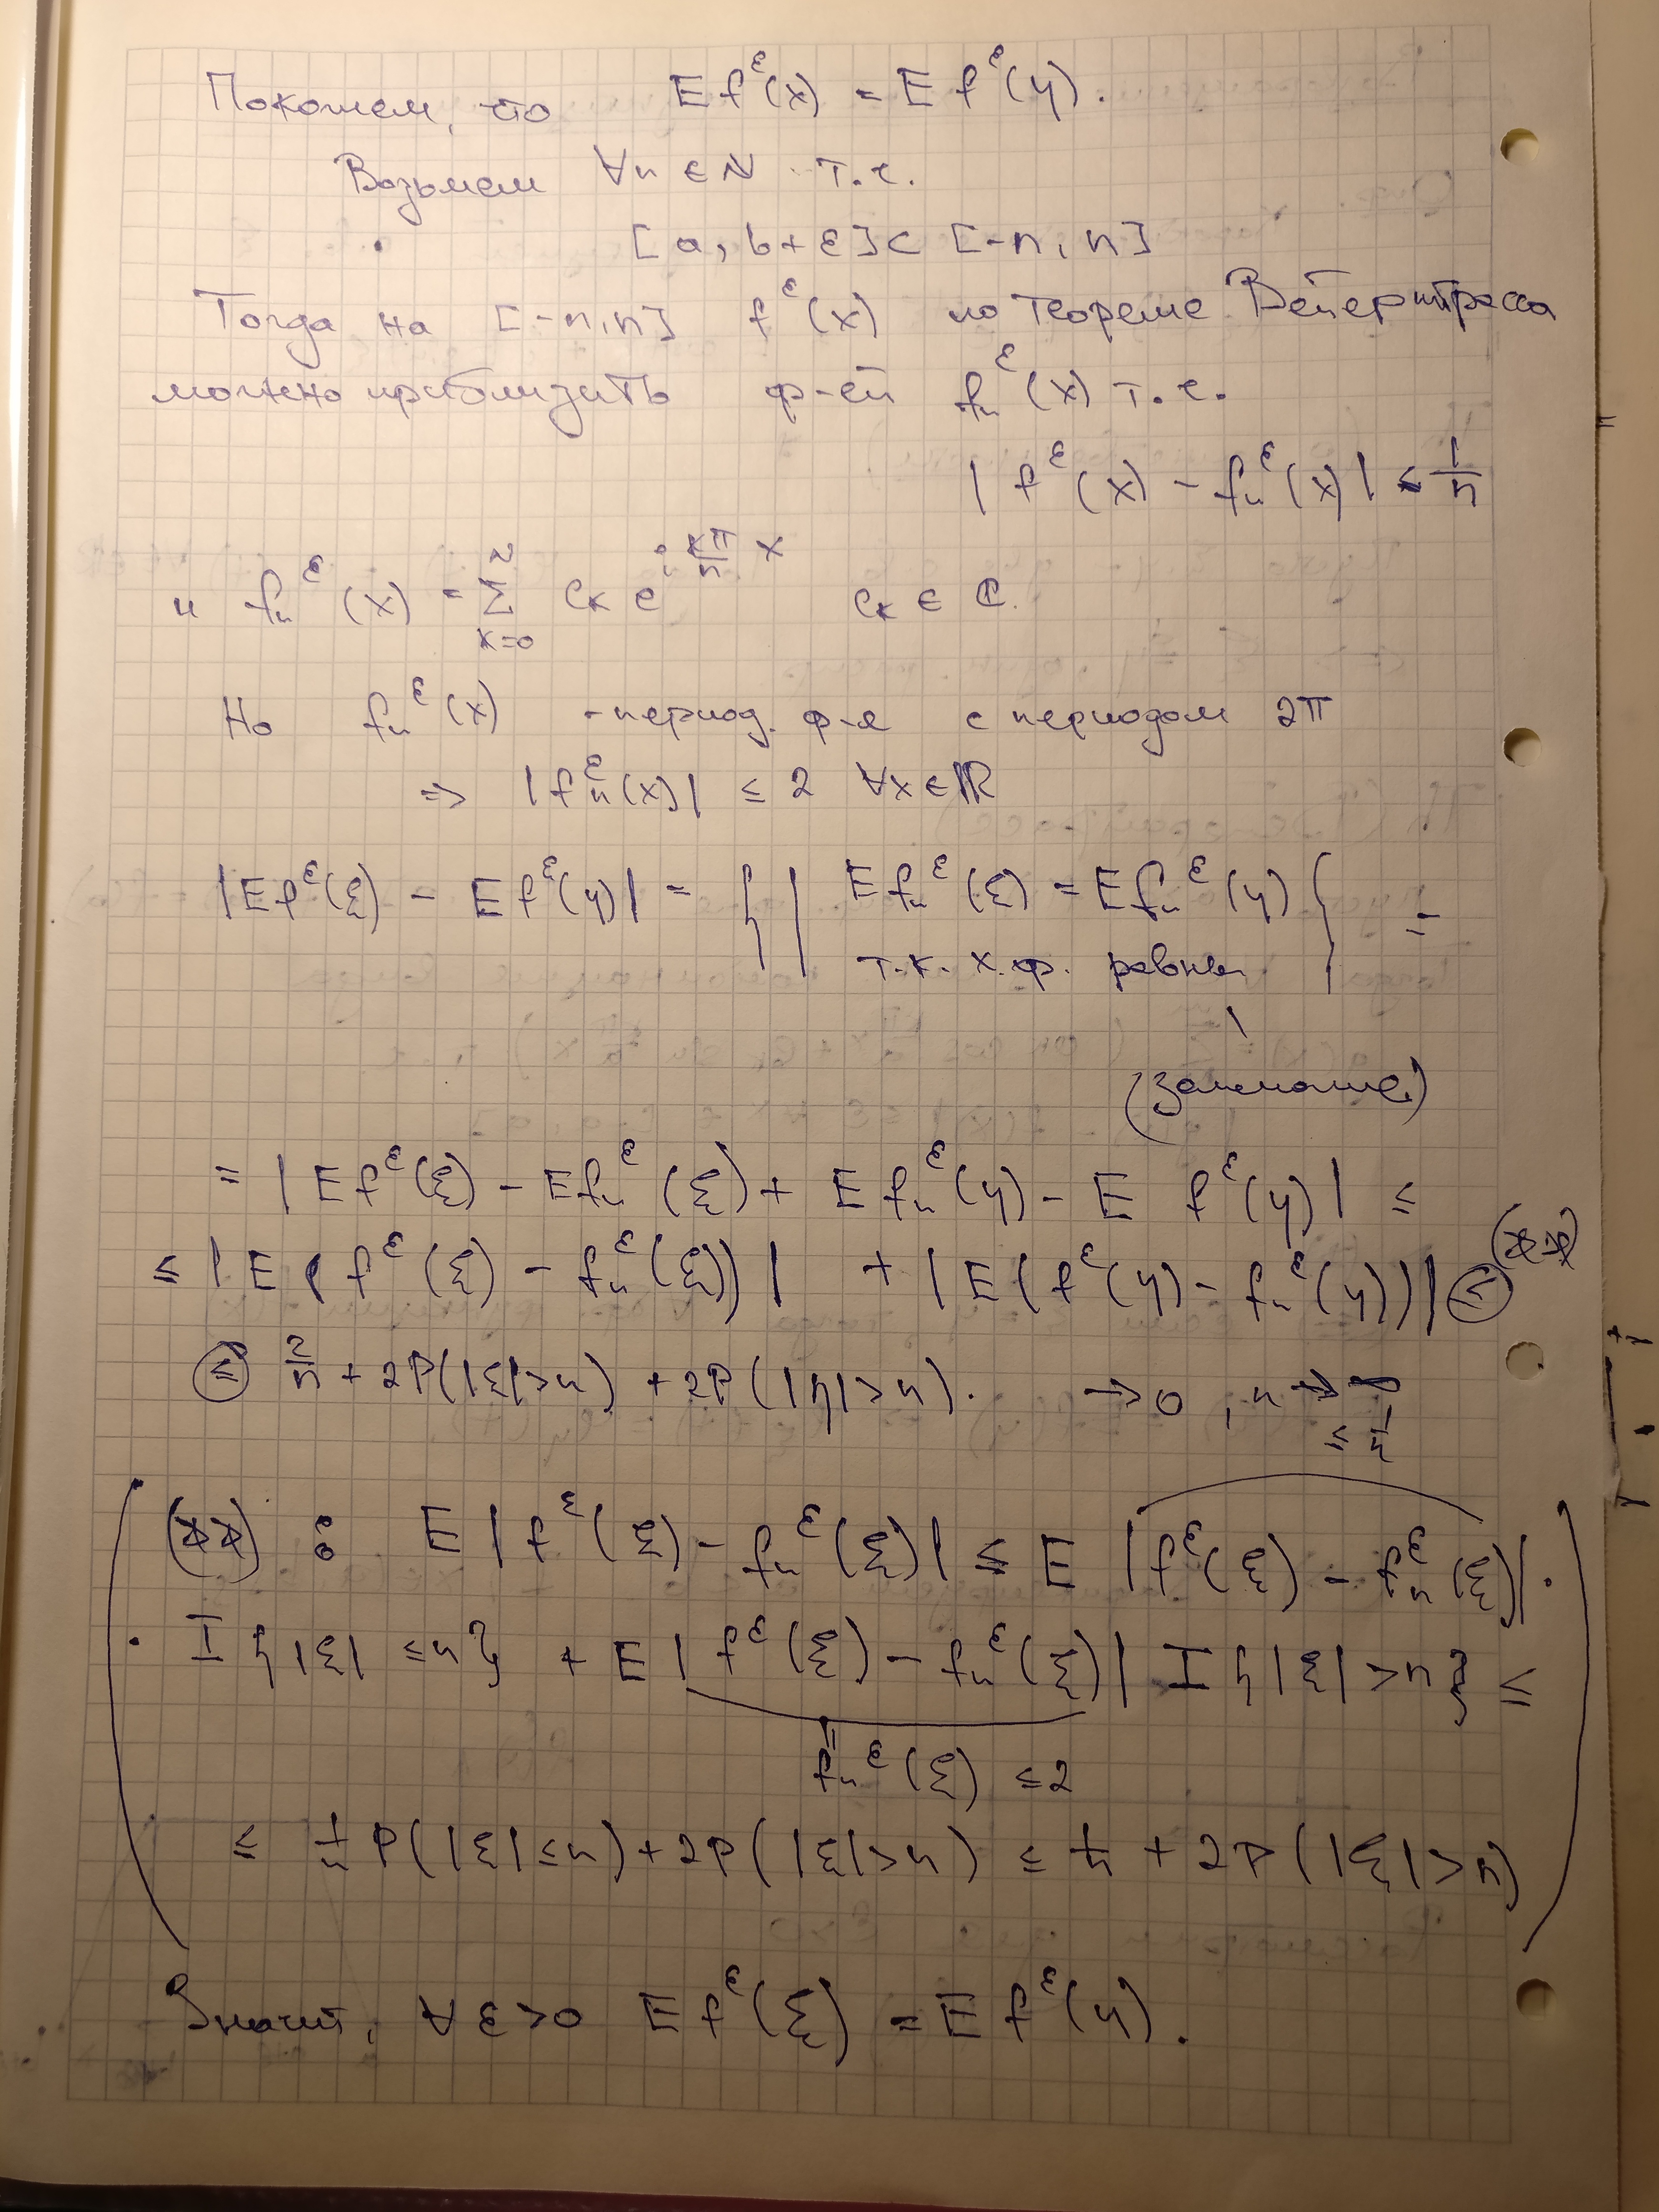 Покажем, что E f^ε(x) = E f^ε(η).
Возьмем ∀n ∈ N т.ч.
[a, b+ε] ⊂ [-n, n]
Тогда на [-n, n] f^ε(x) по теореме Вейерштрасса
можно приблизить ф-ей f_n^ε(x) т.ч.
| f^ε(x) - f_n^ε(x) | ≤ 1/n
и f_n^ε(x) = Σ_{k=0}^{N} c_k e^{i (kπ/n) x} c_k ∈ C.
Но f_n^ε(x) - период. ф-я с периодом 2π
⇒ |f_n^ε(x)| ≤ 2 ∀x∈R
|E f^ε(ξ) - E f^ε(η)| = { | E f_n^ε(ξ) = E f_n^ε(η) } =
т.к. х.ф. равны
= | E f^ε(ξ) - E f_n^ε(ξ) + E f_n^ε(η) - E f^ε(η) | ≤
≤ | E ( f^ε(ξ) - f_n^ε(ξ)) | + | E ( f^ε(η) - f_n^ε(η)) | ≤ (**)
≤ 2/n + 2P(|ξ|>n) + 2P(|η|>n). → 0, n → ∞
≤ 1/n
(**) : E | f^ε(ξ) - f_n^ε(ξ) | ≤ E | f^ε(ξ) - f_n^ε(ξ) | ·
· I{|ξ| ≤ n} + E | f^ε(ξ) - f_n^ε(ξ) | I{|ξ| > n} ≤
f_n^ε(ξ) ≤ 2
≤ 1/n P(|ξ| ≤ n) + 2P(|ξ| > n) ≤ 1/n + 2P(|ξ| > n)
Значит, ∀ε>0 E f^ε(ξ) = E f^ε(η).